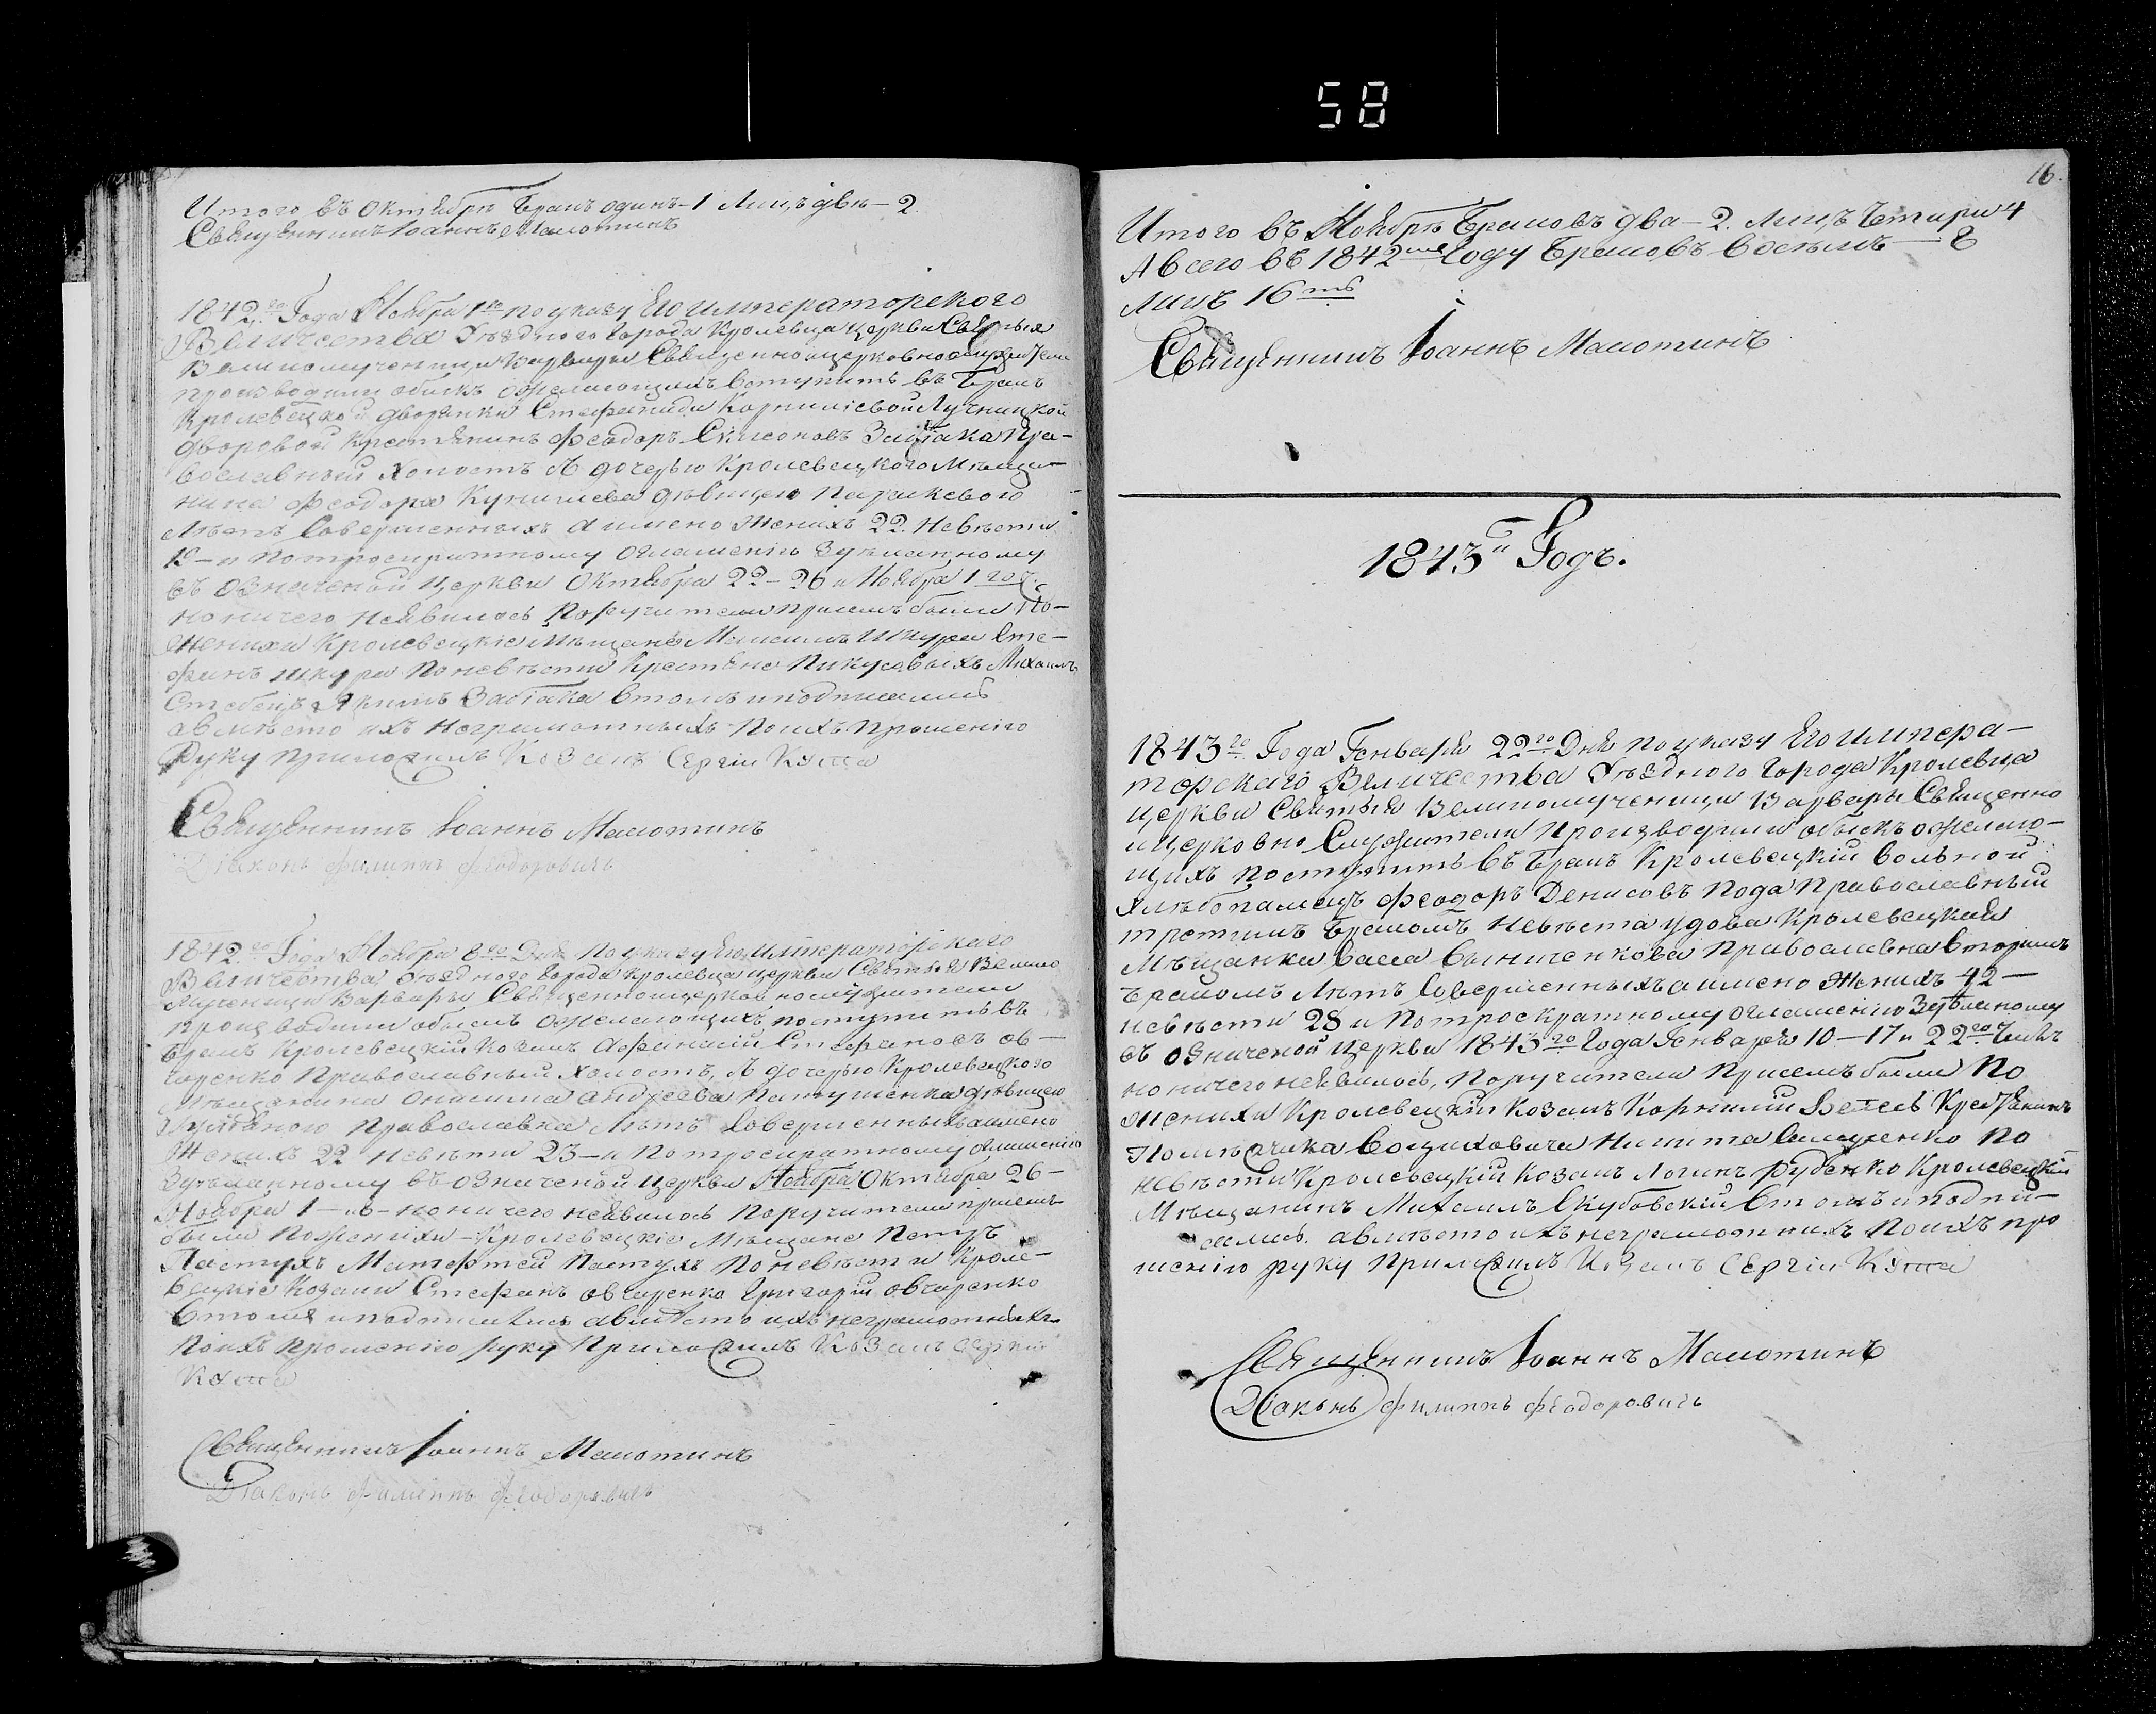 58
Итого въ Октябрѣ Бракъ одинъ-1 Лицъ двѣ-2.
Священникъ Іоаннъ Малютинъ
1842.го Года Ноября 1го по указу Его Императорского
Величества Уѣздного Города Кролевца Церкви Святыя
Великомученици Варвары Священноицерковнослужители
производили обыскъ ожелающихъ вступить въ Бракъ
Кролевецкой дворянки Стефаниди Корниліевой Лучницкой
дворовой Крестянинъ Феодоръ Симоновъ Забіака Пра-
вославный Холостъ Съ дочерью Кролевецкого Мѣщи-
нина Феодора девицею Параскевого
Лѣтъ Совершенныхъ а имено Женихъ 22. Невѣсти
и потроекратному Оглашенію Зделанному
въ Означеной Церкви Октября 22-26 и Ноября 1го
но ничего Неявилось Поручители Присемъ были По-
Женихи Кролевецкіе Мѣщане Максимъ Шкура Сте-
фанъ Шкура По невѣсти Крестяне Михаилъ
Якимъ Забіака Втомъ иподписались
авмѣсто ихъ Неграмотныхъ Поихъ Прошенію
Руку приложилъ Козакъ Сергіи
Священникъ Іоаннъ Малютинъ
Діаконъ Филиппъ Феодоровичъ
1842.го Года Ноября 8го Дня По указу Его Императорского
Величества Уѣздного Города Кролевца церкви Святыя Велико
мученици Варвары Священноицерковнослужители
производили обыскъ Ожелающихъ поступить въ
Бракъ Кролевецкій Козакъ Афанасій Стефановъ Ов-
чаренко Православный холостъ, Съ дочерью Кролевецкого
Мѣщанина Онисима Андреева девицею
Православна Лѣтъ Совершенныхъ аимено
Женихъ 22 Невѣсти 23-и Потроекратному оглашенію
Зделанному въ Означеной Церкви Ноября Октября 26-
Ноября 1- но ничего неявилось Поручители присемъ
были Поженихи-Кролевецкіе Мѣщане Петръ
Пастухъ Матфей Пастухъ Поневѣсти Кроле-
вецкіе Козаки Стефанъ Овчаренко Григорій Овчаренко
Втомъ иподписались авмѣсто ихъ неграмотныхъ
Поихъ Прошенію руку Приложилъ Козакъ Сергіи
Священникъ Іоаннъ Малютинъ
Діаконъ Филиппъ Феодоровичъ
16.
Итого въ Ноябрѣ Браковъ два-2. Лицъ Четири 4
А всего въ 1842мъ Году Браковъ Восѣмъ — 8
Лицъ 16ть
Священникъ Іоаннъ Малютинъ
1843й Годъ.
1843го Года Генваря 22го Дня По указу Его Импера-
торскаго Величества Уѣздного Города Кролевца
Церкви Святыя Великомученици Варвары Священно
ицерковно Служители Производили обыскъ ожелаю-
щихъ поступить въ Бракъ Кролевецкій вольной
хлѣбопашецъ Феодоръ Денисовъ Пода Православный
третимъ Бракомъ Невѣста удова Кролевецкая
Мѣщанка Васса Православна Вторимъ
Бракомъ Лѣтъ Совершенныхъ аимено Женихъ 42-
невѣсти 28 и Потроекратному оглашенію Зделанному
въ означеной Церкви 1843го Года Генваря 10-17 и 22го Чиселъ
но ничего неявилось, Поручители Присемъ были По
жениха Кролевецкій Козакъ Корнилій Крестянинъ
Помѣщика Никита По
невѣсти Кролевецкій Козакъ Логинъ Руденко Кролевецкій
Мѣщанинъ Михаилъ Скубовскій Втомъ иподпи-
сались. авмѣсто ихъ неграмотнихъ Поихъ про
шенію руку Приложилъ Козакъ Сергіи
Священникъ Іоаннъ Малютинъ
Діаконъ Филиппъ Феодоровичъ